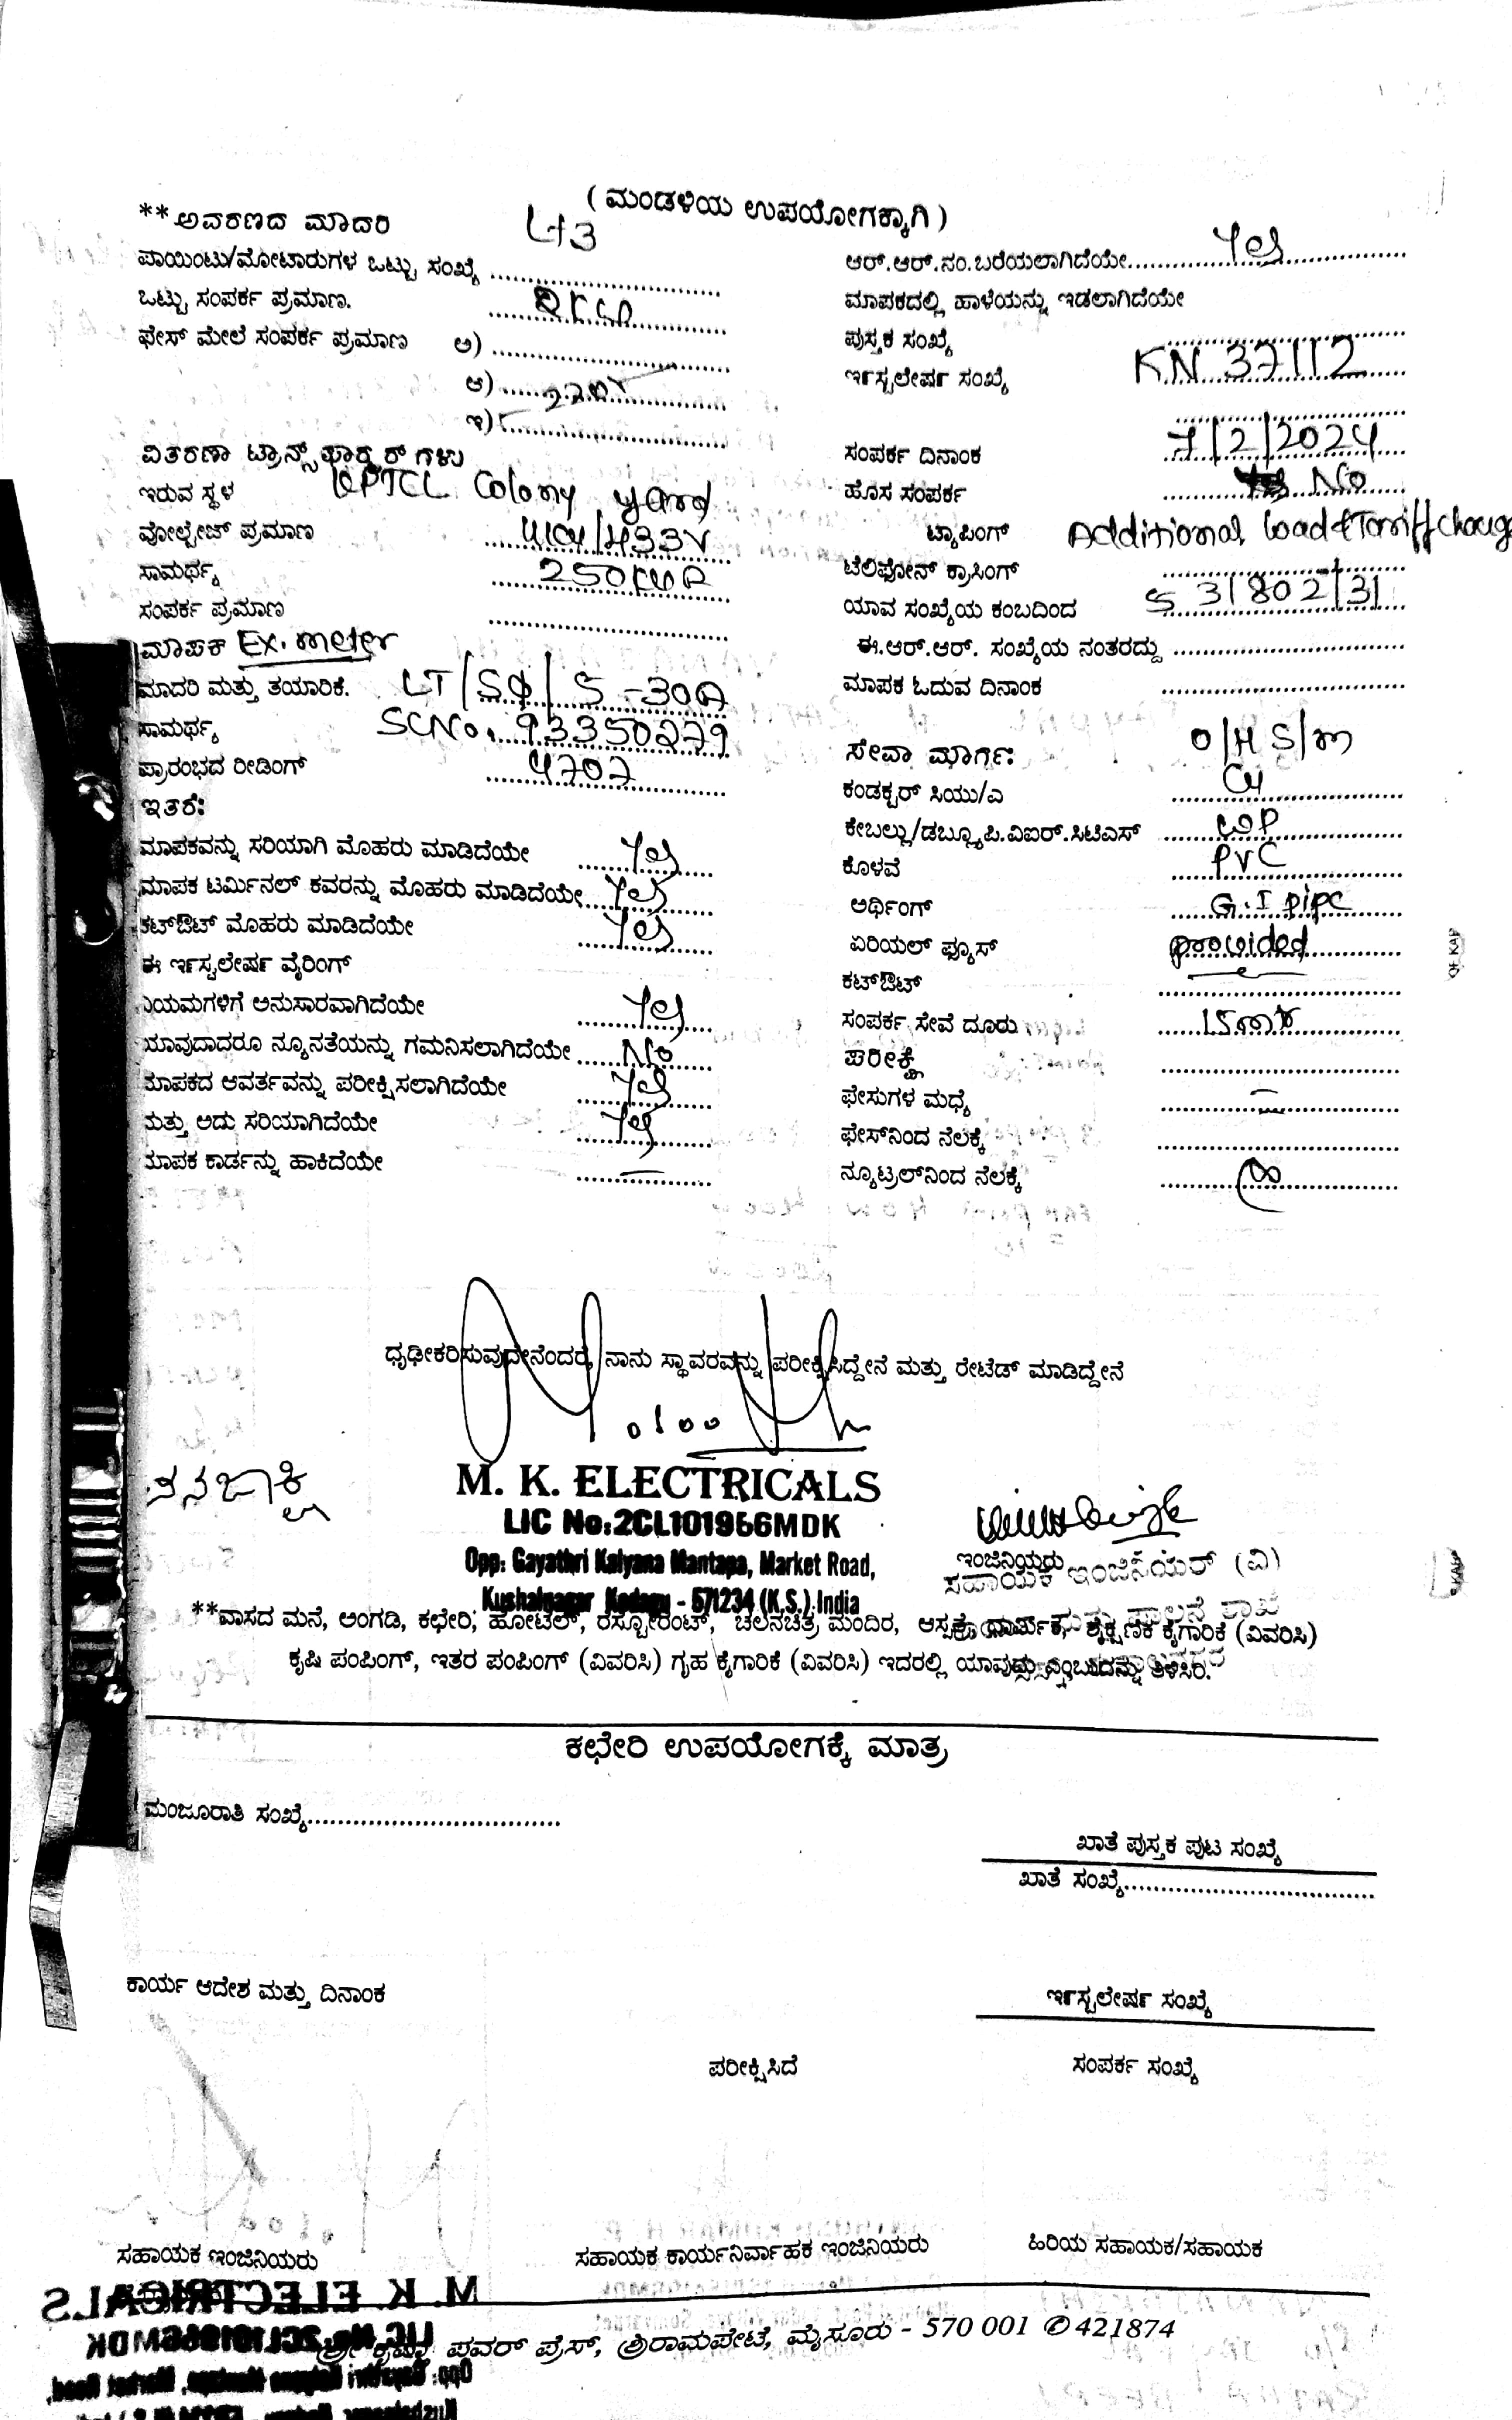 ( ಮಂಡಳಿಯ ಉಪಯೋಗಕ್ಕಾಗಿ )
**ಅವರಣದ ಮಾದರಿ Lt3
ಪಾಯಿಂಟು/ಮೋಟಾರುಗಳ ಒಟ್ಟು ಸಂಖ್ಯೆ ..........
ಒಟ್ಟು ಸಂಪರ್ಕ ಪ್ರಮಾಣ.
ಫೇಸ್ ಮೇಲೆ ಸಂಪರ್ಕ ಪ್ರಮಾಣ ಅ) ..........
ಆ) ..........
ಇ) ..........
ವಿತರಣಾ ಟ್ರಾನ್ಸ್‌ಫಾರ್ಮರ್‌ಗಳು
ಇರುವ ಸ್ಥಳ KPTCL Colony yard
ವೋಲ್ಟೇಜ್ ಪ್ರಮಾಣ 11KV/433V
ಸಾಮರ್ಥ್ಯ 250KVA
ಸಂಪರ್ಕ ಪ್ರಮಾಣ ..........
ಮಾಪಕ Ex. meter
ಮಾದರಿ ಮತ್ತು ತಯಾರಿಕೆ. LT/Sφ/5-30A
ಸಾಮರ್ಥ್ಯ SCNo. 93350279
ಪ್ರಾರಂಭದ ರೀಡಿಂಗ್ 4707
ಇತರೆ:
ಮಾಪಕವನ್ನು ಸರಿಯಾಗಿ ಮೊಹರು ಮಾಡಿದೆಯೇ Yes
ಮಾಪಕ ಟರ್ಮಿನಲ್ ಕವರನ್ನು ಮೊಹರು ಮಾಡಿದೆಯೇ Yes
ಕಟ್‌ಔಟ್ ಮೊಹರು ಮಾಡಿದೆಯೇ Yes
ಈ ಇನ್‌ಸ್ಟಲೇಷನ್ ವೈರಿಂಗ್
ನಿಯಮಗಳಿಗೆ ಅನುಸಾರವಾಗಿದೆಯೇ Yes
ಯಾವುದಾದರೂ ನ್ಯೂನತೆಯನ್ನು ಗಮನಿಸಲಾಗಿದೆಯೇ No
ಮಾಪಕದ ಆವರ್ತವನ್ನು ಪರೀಕ್ಷಿಸಲಾಗಿದೆಯೇ Yes
ಮತ್ತು ಅದು ಸರಿಯಾಗಿದೆಯೇ Yes
ಮಾಪಕ ಕಾರ್ಡನ್ನು ಹಾಕಿದೆಯೇ —
ಆರ್.ಆರ್.ನಂ.ಬರೆಯಲಾಗಿದೆಯೇ Yes
ಮಾಪಕದಲ್ಲಿ ಹಾಳೆಯನ್ನು ಇಡಲಾಗಿದೆಯೇ
ಪುಸ್ತಕ ಸಂಖ್ಯೆ
ಇನ್‌ಸ್ಟಲೇಷನ್ ಸಂಖ್ಯೆ KN 37112
ಸಂಪರ್ಕ ದಿನಾಂಕ 7/2/2024
ಹೊಸ ಸಂಪರ್ಕ No
ಟ್ಯಾಪಿಂಗ್ Additional load & Tariff Change
ಟೆಲಿಫೋನ್ ಕ್ರಾಸಿಂಗ್
ಯಾವ ಸಂಖ್ಯೆಯ ಕಂಬದಿಂದ S 31802/31
ಈ.ಆರ್.ಆರ್. ಸಂಖ್ಯೆಯ ನಂತರದ್ದು ..........
ಮಾಪಕ ಓದುವ ದಿನಾಂಕ ..........
ಸೇವಾ ಮಾರ್ಗ: O/H S/m
ಕಂಡಕ್ಟರ್ ಸಿಯು/ಎ Cu
ಕೇಬಲ್ಲು/ಡಬ್ಲ್ಯೂಪಿ.ವಿಐರ್.ಸಿಟಿಎಸ್ WP
ಕೊಳವೆ PVC
ಅರ್ಥಿಂಗ್ G.I pipe
ಏರಿಯಲ್ ಫ್ಯೂಸ್ provided
ಕಟ್‌ಔಟ್ ..........
ಸಂಪರ್ಕ ಸೇವೆ ದೂರು
ಪರೀಕ್ಷೆ ..........
ಫೇಸುಗಳ ಮಧ್ಯೆ ..........
ಫೇಸ್‌ನಿಂದ ನೆಲಕ್ಕೆ ..........
ನ್ಯೂಟ್ರಲ್‌ನಿಂದ ನೆಲಕ್ಕೆ ..........
ಧೃಢೀಕರಿಸುವುದೇನೆಂದರೆ, ನಾನು ಸ್ಥಾವರವನ್ನು ಪರೀಕ್ಷಿಸಿದ್ದೇನೆ ಮತ್ತು ರೇಟೆಡ್ ಮಾಡಿದ್ದೇನೆ
M. K. ELECTRICALS
LIC No:2CL101966MDK
Opp: Gayathri Kalyana Mantapa, Market Road,
Kushalnagar Kodagu - 571234 (K.S.) India
ಇಂಜಿನಿಯರು
ಸಹಾಯಕ ಇಂಜಿನಿಯರ್ (ವಿ)
**ವಾಸದ ಮನೆ, ಅಂಗಡಿ, ಕಛೇರಿ, ಹೋಟೆಲ್, ರೆಸ್ಟೋರೆಂಟ್, ಚಲನಚಿತ್ರ ಮಂದಿರ, ಆಸ್ಪತ್ರೆ, ಧಾರ್ಮಿಕ, ಶೈಕ್ಷಣಿಕ ಕೈಗಾರಿಕೆ (ವಿವರಿಸಿ)
ಕೃಷಿ ಪಂಪಿಂಗ್, ಇತರ ಪಂಪಿಂಗ್ (ವಿವರಿಸಿ) ಗೃಹ ಕೈಗಾರಿಕೆ (ವಿವರಿಸಿ) ಇದರಲ್ಲಿ ಯಾವುದು ಎಂಬುದನ್ನು ತಿಳಿಸಿರಿ.
ಕಛೇರಿ ಉಪಯೋಗಕ್ಕೆ ಮಾತ್ರ
ಮಂಜೂರಾತಿ ಸಂಖ್ಯೆ..........
ಖಾತೆ ಪುಸ್ತಕ ಪುಟ ಸಂಖ್ಯೆ
ಖಾತೆ ಸಂಖ್ಯೆ..........
ಕಾರ್ಯ ಆದೇಶ ಮತ್ತು ದಿನಾಂಕ
ಇನ್‌ಸ್ಟಲೇಷನ್ ಸಂಖ್ಯೆ
ಪರೀಕ್ಷಿಸಿದೆ ಸಂಪರ್ಕ ಸಂಖ್ಯೆ
ಸಹಾಯಕ ಇಂಜಿನಿಯರು ಸಹಾಯಕ ಕಾರ್ಯನಿರ್ವಾಹಕ ಇಂಜಿನಿಯರು ಹಿರಿಯ ಸಹಾಯಕ/ಸಹಾಯಕ
ಪವರ್ ಪ್ರೆಸ್, ಶ್ರೀರಾಮಪೇಟೆ, ಮೈಸೂರು - 570 001 ✆ 421874